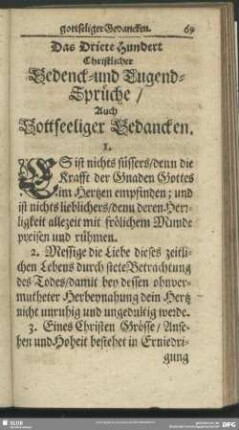 gottseliger Gedancken. 69
Das Dritte Hundert
Christlicher
Gedenck-und Tugend-
Sprüche /
Auch
Gottseeliger Gedancken.
1.
ES ist nichts süssers/denn die
Krafft der Gnaden Gottes
im Hertzen empfinden; und
ist nichts lieblichers/denn deren Herr-
ligkeit allezeit mit frölichem Munde
preisen und rühmen.
2. Messige die Liebe dieses zeitli-
chen Lebens durch stete Betrachtung
des Todes/damit bey dessen ohnver-
mutheter Herbeynahung dein Hertz
nicht unruhig und ungedultig werde.
3. Eines Christen Grösse/ Anse-
hen und Hoheit bestehet in Erniedri-
gung
SLUB
DFG